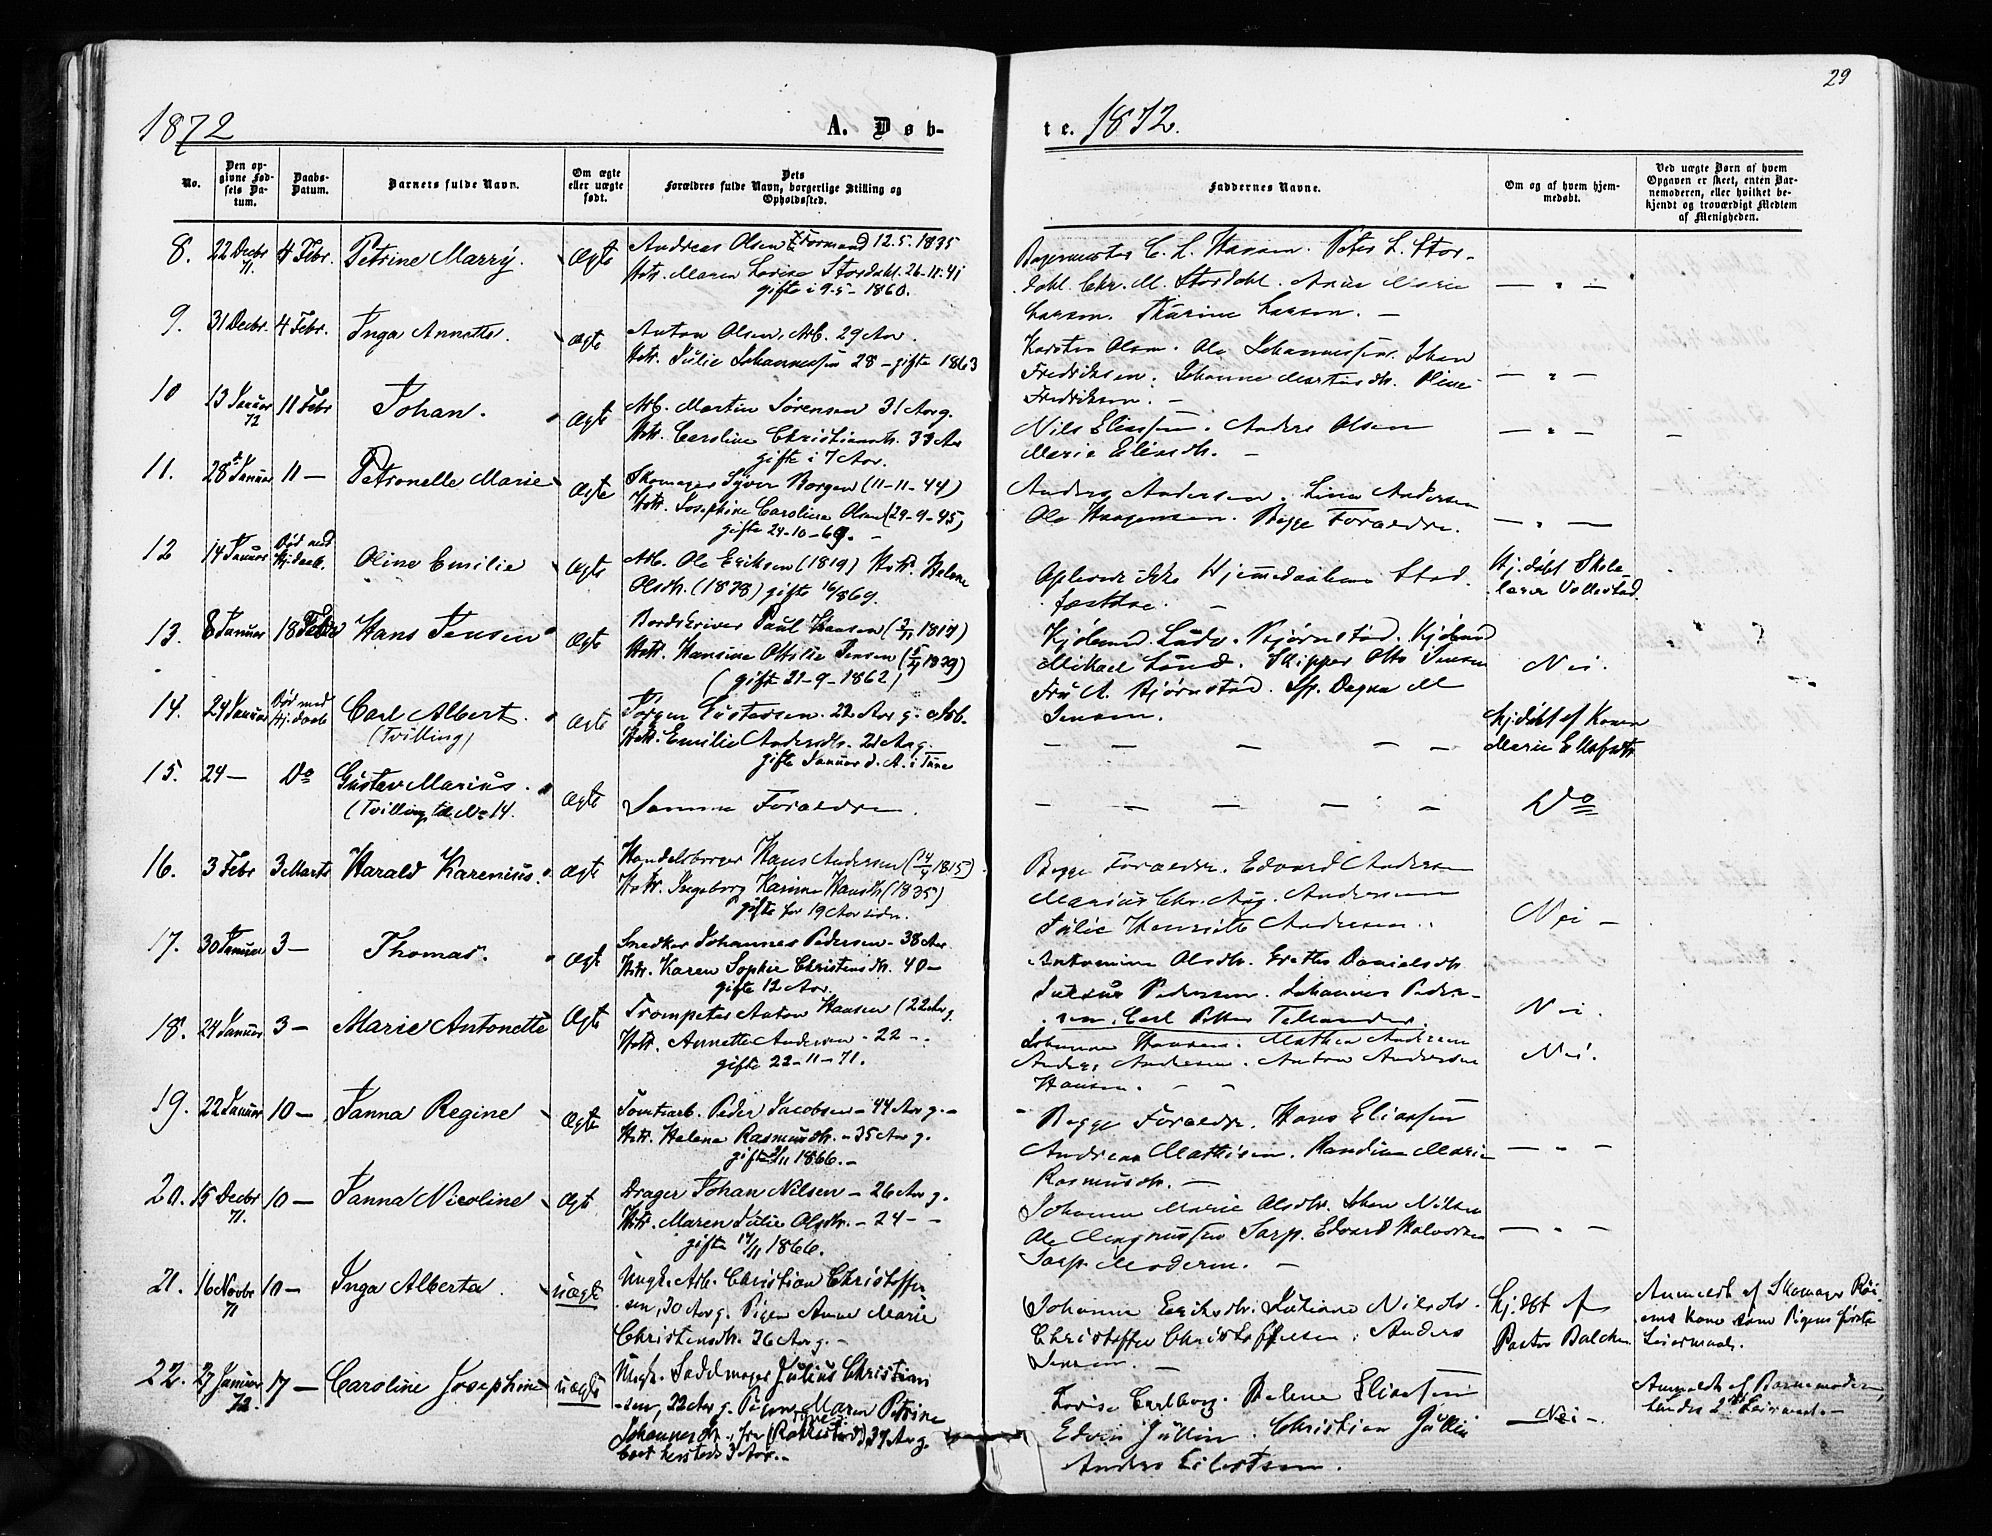 29
1872
A. Døb-
te. 1872.
No.
Den op-
givne Fød-
sels Da-
tum.
Daabs-
Datum.
Barnets fulde Navn.
Om ægte
eller uægte
født.
Dets
Forældres fulde Navn, borgerlige Stilling og
Opholdssted.
Faddernes Navne.
Om og af hvem hjem-
medøbt.
Ved uægte Børn af hvem
Opgaven er skeet, enten Bar-
nemoderen, eller hvilket be-
kjendt og troværdigt Medlem
af Menigheden.
8. 22 Decbr 71. 4 Febr. Petrine Marry. Ægte
Andreas Olsen Formand 12.5.1835
Hstr. Maren Lovise Stordahl. 26-11-41
gifte i 9-5-1860.
C. L. Hansen. Peter L. Stor-
dahl. Chr. M. Stordahl. Anne Marie
Larsen. Karine Larsen. —
— " —
9. 31 Decbr. 4 Febr. Inga Annette. Ægte
Anton Olsen, Arb. 29 Aar.
Hstr. Julie Johannessen 28 - gifte 1863
Karsten Olsen. Ole Johannessen. Johan
Fredriksen. Johanne Martinsdtr. Oline
Fredriksen. —
— " —
10 13 Januar 72 11 Febr Johan. Ægte
Arb. Martin Sørensen 31 Aar g.
Hstr. Caroline Christiansdtr. 33 Aar
gifte i 7 Aar.
Nils Eliassen. Anders Olsen
Marie Eliasdtr. —
— " — —
11. 28 Januar 11 — Petronelle Marie Ægte
Skomager Syver Borgen (11-11-44)
Hstr. Josephine Caroline Olsen (29-9-45)
gifte 24-10-69. —
Anders Andersen. Lina Andersen
Ole Haagensen. Begge Forældre.
— " —
12 14 Januar Død med Hj.daab. Oline Emilie Ægte
Arb. Ole Eriksen (1819) Hstr. Helene
Olsdtr. (1828) gifte 16/869.
Oplevede ikke Hjemmedaabens Stad-
fæstelse. —
Hj.døbt Skole
lærer Vollestad.
13. 8 Januar 18 Febr Hans Jensen Ægte
Bordskriver Paul Hansen (1817)
Hstr. Hansine Ottilie Jensen (1839)
(gifte 21-9-1862)
Kjøbmd. Ludv. Bjørnstad. Kjøbmd
Mikael Lund. Skipper Otto Jensen
Fru A. Bjørnstad. Frk. Dagna M
Jensen.
Nei.
14. 24 Januar Død med Hj.daab Carl Albert. Ægte
(Tvilling)
Jørgen Gustavsen. 22 Aar g. Arb.
Hstr. Emilie Andersdtr. 21 Aar g.
gifte Januar d. A. i Tune
— — — — —
Hj.døbt af Konen
Marie
15. 24 — Do Gustav Marius. Ægte
(Tvilling til No 14.
Samme Forældre.
— — — — —
Do
16. 3 Febr 3 Marts Harald Karenius. Ægte
Handelsborger Hans Andersen (1815)
Hstr. Ingeborg Karine Hansdtr (1835)
gifte for 19 Aar siden.
Begge Forældre. Edvard Andersen
Marius Chr. Aug. Andersen
Julie Henriette Andersen.
Nei —
17. 30 Januar 3 — Thomas. Ægte
Snedker Johannes Pedersen - 38 Aar
Hstr. Karen Sophie Christensdtr. 40 —
gifte 12 Aar.
Antomine Olsdtr. Grethe Danielsdtr.
Julius Pedersen. Johannes Peder-
sen. Carl Petter Tellander.
Nei.
18. 24 Januar 3 — Marie Antonette Ægte
Trompeter Anton Hansen (22 Aar g.
Hstr. Annette Andersen - 22 —.
gifte 22-11-71.
Johanne Hansen. Mathea Andersen
Anders Andersen. Anton Andersen
Hansen. — —
Nei.
19. 22 Januar 10 — Janna Regine Ægte
Tomtearb. Peder Jacobsen - 44 Aar g. —
Hstr. Helene Rasmusdtr. - 35 Aar g.
gifte 1866. —
Begge Forældre. Hans Eliassen
Andreas Mathisen. Randine Marie
Rasmusdtr. —
— " —
20. 15 Decbr 71. 10 — Janna Nicoline Ægte
Drager Johan Nilsen - 26 Aar g.
Hstr. Maren Julie Olsdtr. - 24 - -
gifte 17/11 1866.
Johanne Marie Olsdtr. Johan Nilsen
Ole Magnussen Sarp. Edvard Halvorsen
Sarp. Moderen. —
— " —
21. 16 Novbr 71 10 — Inga Alberta. uægte
Ungk. Arb. Christian Christoffer-
sen, 30 Aar g. Pigen Anne Marie
Christensdtr. 26 Aar g. —
Johanne Eriksdtr. Juliane Nilsdtr.
Christoffer Christoffersen. Anders
Jensen. —
Hj.døbt af
Pastor Balchen
Anmeldt af Skomager
Kone som Pigens første
Leiermaal.
22. 27 Januar 72. 17 — Caroline Josephine uægte
Ungk. Sadelmager Julius Christian
sen, 22 Aar g. Pigen Maren Petrine
Johannesdtr. fra (Rakkestad) 34 Aar g.
boet her steds 3 Aar. —
Lovise Carlborg. Helene Eliassen
Edvin Jullin. Christian Jullin
Anders Eilertsen.
— Nei —
Anmeldt af Barnemoderen,
hendes 2det Leiermaal. —